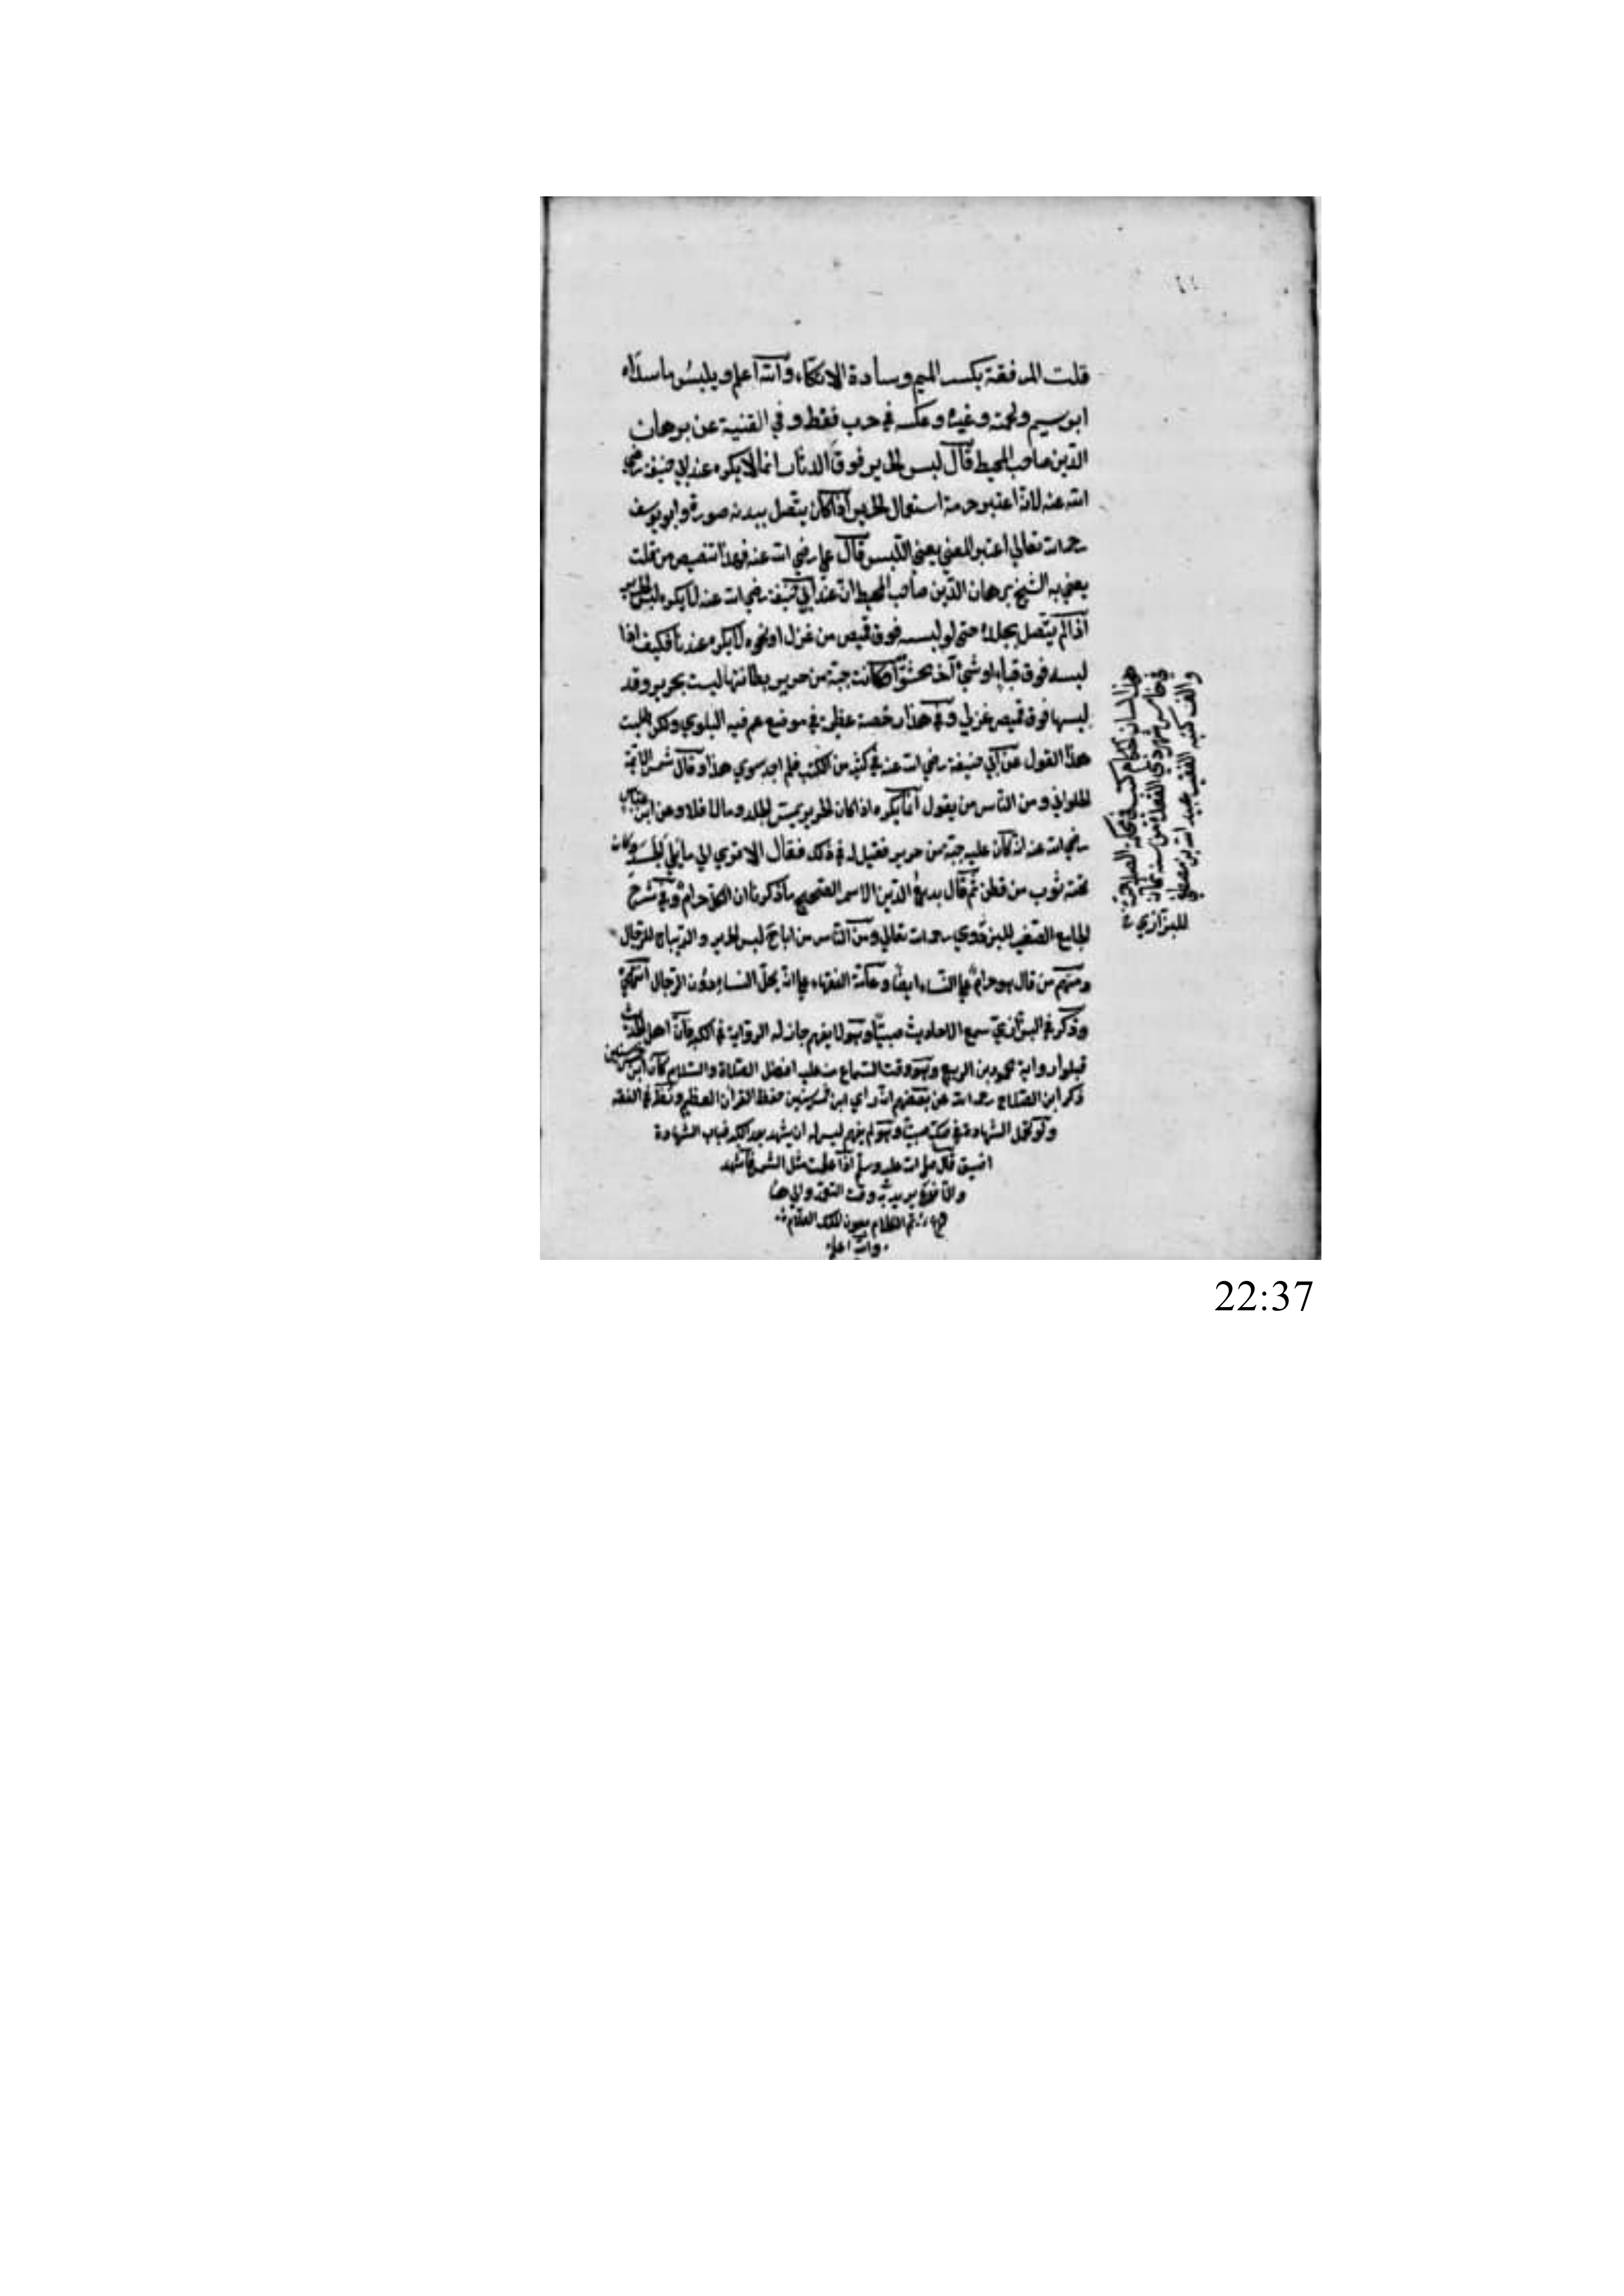 قلت المرفقة بكسر الميم وسادة الاتكاء والله اعلم ويلبس ما سداه
ابريسم ولحمته وغيره وعكسه في حرب فقط وفي القنية عن برهان
الدين صاحب المحيط قال لبس الحرير فوق الدثار انما لا يكره عند ابي حنيفة رضي
الله عنه لانه اعتبر حرمة استعمال الحرير اذا كان يتصل ببدنه صورة وابو يوسف
رحمه الله تعالى اعتبر المعنى يعني اللبس قال علي رضي الله عنه فهذا تنصيص من قلت
يعني به الشيخ برهان الدين صاحب المحيط ان عند ابي حنيفة رضي الله عنه لا يكره لبس الحرير
اذا لم يتصل بجلده حتى لو لبسه فوق قميص من غزل او نحوه لا يكره عندنا فكيف اذا
لبسه فوق قباء او شيء آخر محشوّ او كانت جبة من حرير بطانتها ليست بحرير وقد
لبسها فوق قميص غزلي وفي هذا رخصة عظيمة في موضع عم فيه البلوى ولكن طلبت
هذا القول عن ابي حنيفة رضي الله عنه في كثير من الكتب فلم اجد سوى هذا وقال شمس الائمة
الحلواني ومن الناس من يقول انما يكره اذا كان الحرير يمس الجلد وما لا فلا وعن ابن عباس
رضي الله عنه انه كان عليه جبة من حرير فقيل له في ذلك فقال الا ترى الى ما يلي الجسد وكان
تحته ثوب من قطن ثم قال بديع الدين الا ان الصحيح ما ذكرنا ان الكل حرام وفي شرح
الجامع الصغير للبزدوي رحمه الله تعالى ومن الناس من اباح لبس الحرير والديباج للرجال
ومنهم من قال هو حرام على النساء ايضا وعامة الفقهاء على انه يحل للنساء دون الرجال انتهى
وذكر في البزازي سمع الاحاديث صبيا وهو لا يفهم جاز له الرواية في الكبر فان اهل الحديث
قبلوا رواية محمود بن الربيع وهو وقت السماع منه عليه افضل الصلاة والسلام كان ابن خمس سنين
ذكر ابن الصلاح رحمه الله عن بعضهم انه راي ابن خمس سنين حفظ القران العظيم ونظر في الفقه
ولو تحمل الشهادة في صكه صبيا وهو لم يفهم ليس له ان يشهد بعد الكبر فباب الشهادة
اضيق قال صلى الله عليه وسلم اذا علمت مثل الشمس فاشهد
وقت
تم الكلام بعون الملك العلام
والله اعلم
هذا لسان الحكام كتب في محكمة الصلاحية
في خامس شهر ذي القعدة من سنة ثمان
والف كتبه الفقير عبد الله بن مصطفى
للبزازي
22:37